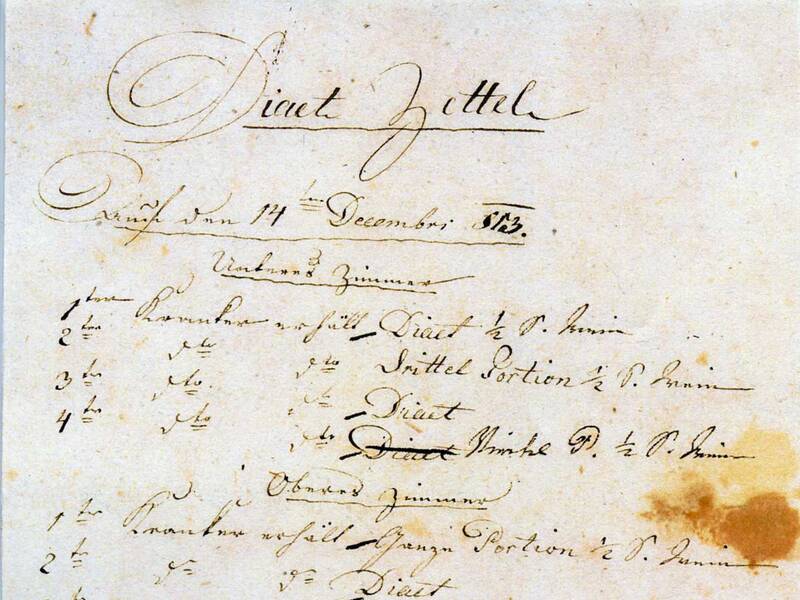 Diaet Zettel
Auf den 14ten Decembri 813.
Unteres Zimmer
1ter Kranker erhält Diaet ½ S. Wein
2ter dto dto Drittel Portion ½ S. Wein
3tr dto dto Diaet
4tr dto dto Diaet Viertel P. ½ S. Wein
Oberes Zimmer
1tr Kranker erhält Ganze Portion ½ S. Wein
2tr dto dto Diaet